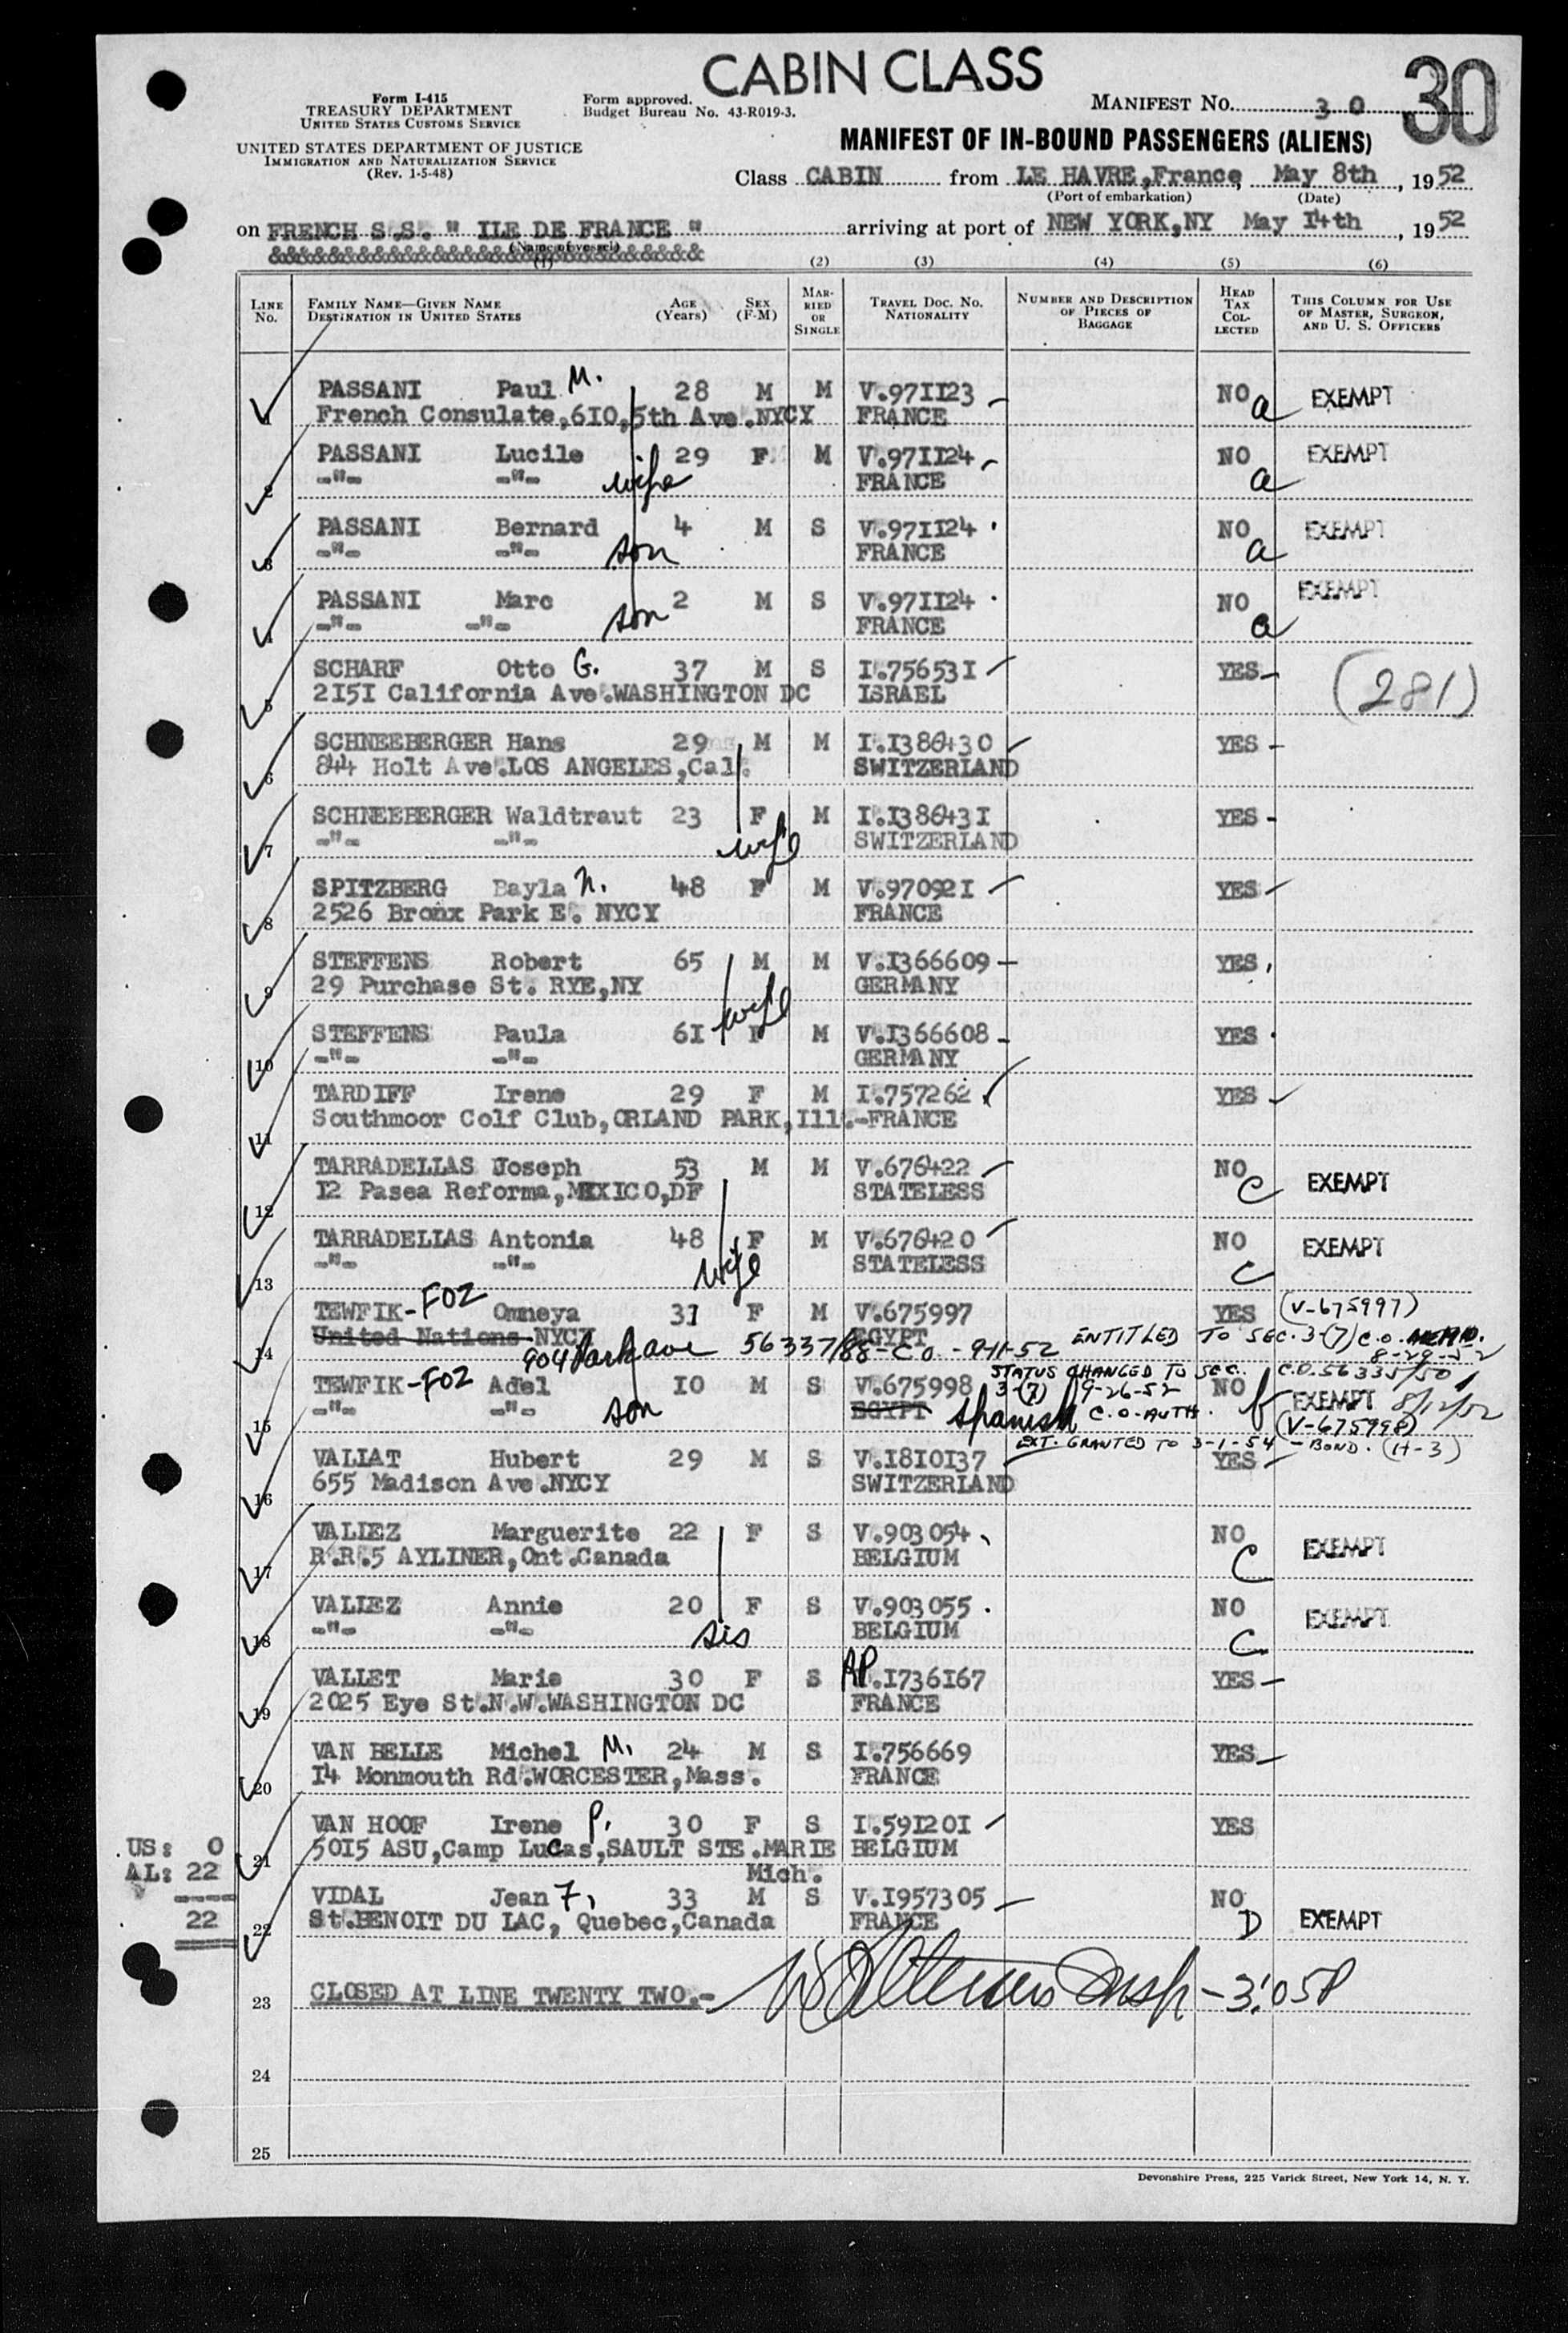 CABIN CLASS
30
Form I-415
TREASURY DEPARTMENT
UNITED STATES CUSTOMS SERVICE
UNITED STATES DEPARTMENT OF JUSTICE
IMMIGRATION AND NATURALIZATION SERVICE
(Rev. 1-5-48)
Form approved.
Budget Bureau No. 43-R019-3.
MANIFEST NO. 30
MANIFEST OF IN-BOUND PASSENGERS (ALIENS)
Class CABIN from LE HAVRE,France, May 8th, 1952
(Port of embarkation) (Date)
on FRENCH S.S. " ILE DE FRANCE " arriving at port of NEW YORK,NY May 14th, 1952
(Name of vessel)
(1) (2) (3) (4) (5) (6)
LINE No. FAMILY NAME—GIVEN NAME DESTINATION IN UNITED STATES AGE (Years) SEX (F-M) MARRIED OR SINGLE TRAVEL DOC. NO. NATIONALITY NUMBER AND DESCRIPTION OF PIECES OF BAGGAGE HEAD TAX COLLECTED THIS COLUMN FOR USE OF MASTER, SURGEON, AND U. S. OFFICERS
1 PASSANI Paul M. 28 M M V.971123 NO a EXEMPT
French Consulate,610,5th Ave.NYCY FRANCE
2 PASSANI Lucile 29 F M V.971124 NO a EXEMPT
-"- -"- wife FRANCE
3 PASSANI Bernard 4 M S V.971124 NO a EXEMPT
-"- -"- son FRANCE
4 PASSANI Marc 2 M S V.971124 NO a EXEMPT
-"- -"- son FRANCE
5 SCHARF Otto G. 37 M S I.756531 YES (281)
2151 California Ave.WASHINGTON DC ISRAEL
6 SCHNEEBERGER Hans 29 M M I.1386430 YES
844 Holt Ave.LOS ANGELES,Cal. SWITZERLAND
7 SCHNEEBERGER Waldtraut 23 F M I.1386431 YES
-"- -"- wife SWITZERLAND
8 SPITZBERG Bayla N. 48 F M V.970921 YES
2526 Bronx Park E. NYCY FRANCE
9 STEFFENS Robert 65 M M V.1366609 YES
29 Purchase St. RYE,NY GERMANY
wife
10 STEFFENS Paula 61 F M V.1366608 YES
-"- -"- GERMANY
11 TARDIFF Irene 29 F M I.757262 YES
Southmoor Colf Club,ORLAND PARK,Ill.-FRANCE
12 TARRADELLAS Joseph 53 M M V.676422 NO C EXEMPT
12 Pasea Reforma,MEXICO,DF STATELESS
13 TARRADELLAS Antonia 48 F M V.676420 NO C EXEMPT
-"- -"- wife STATELESS
14 TEWFIK-FOZ Omneya 31 F M V.675997 YES (V-675997)
United Nations NYCY EGYPT ENTITLED TO SEC. 3-(7) C.O. MEMO.
904 Park ave 56337/88-C.O - 9-11-52 8-29-52
STATUS CHANGED TO SEC. C.O. 56335/50
15 TEWFIK-FOZ Adel 10 M S V.675998 3-(7) 9-26-52 NO f EXEMPT 8/12/52
-"- -"- son EGYPT Spanish C.O. AUTH. (V-675998)
EXT. GRANTED TO 3-1-54 - BOND. (H-3)
16 VALIAT Hubert 29 M S V.1810137 YES
655 Madison Ave.NYCY SWITZERLAND
17 VALIEZ Marguerite 22 F S V.903054 NO C EXEMPT
R.R.5 AYLINER,Ont.Canada BELGIUM
18 VALIEZ Annie 20 F S V.903055 NO C EXEMPT
-"- -"- sis BELGIUM
19 VALLET Marie 30 F S AP.1736167 YES
2025 Eye St.N.W.WASHINGTON DC FRANCE
20 VAN BELLE Michel M. 24 M S I.756669 YES
14 Monmouth Rd.WORCESTER,Mass. FRANCE
21 VAN HOOF Irene P. 30 F S I.591201 YES
5015 ASU,Camp Lucas,SAULT STE.MARIE BELGIUM
Mich.
US: 0
AL: 22
22
22 VIDAL Jean F. 33 M S V.1957305 NO D EXEMPT
St.BENOIT DU LAC, Quebec,Canada FRANCE
23 CLOSED AT LINE TWENTY TWO.- Insp - 3:05P
24
25
Devonshire Press, 225 Varick Street, New York 14, N. Y.